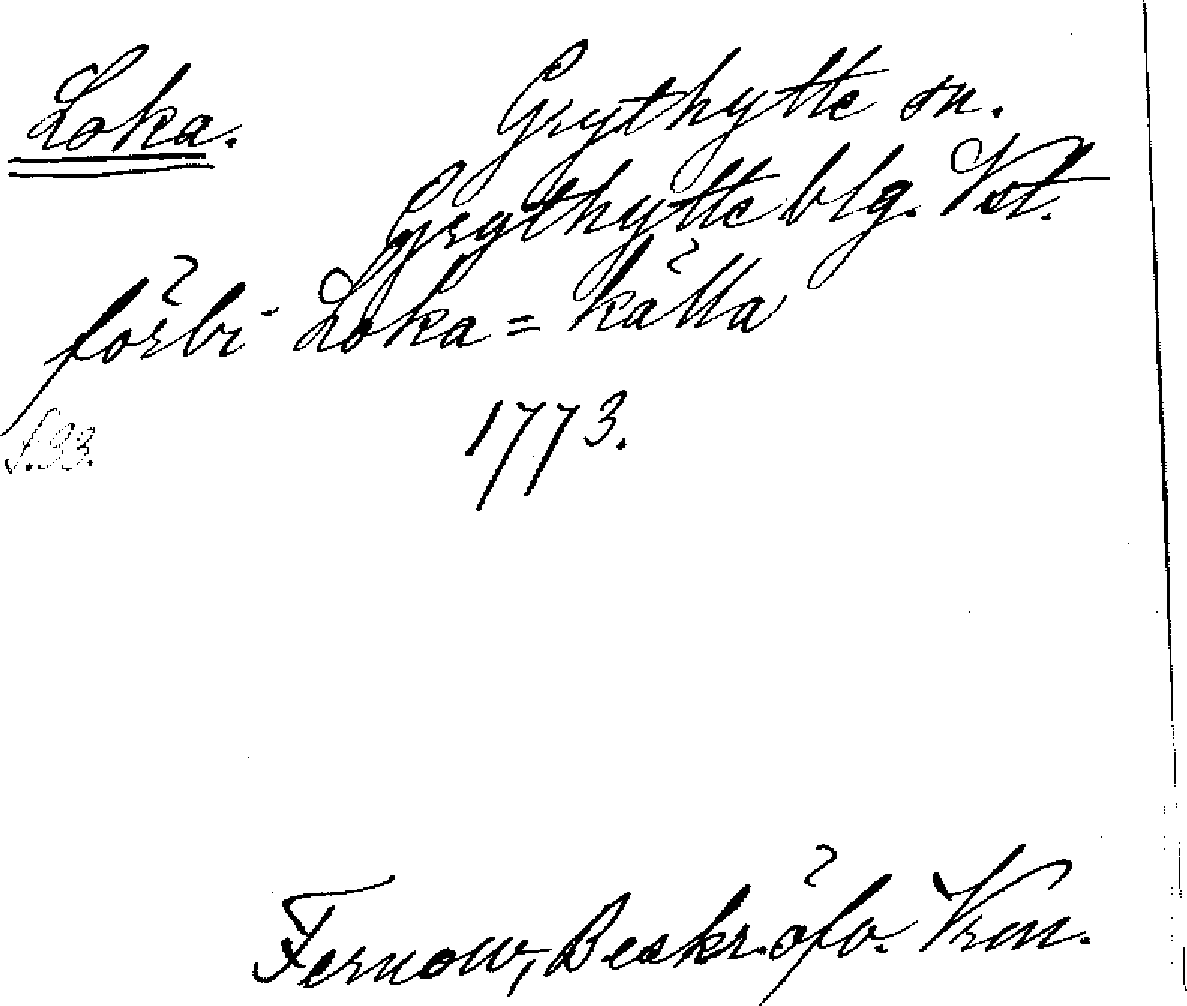 Loka. Grythytte sn.
Grythytte blg. Vst.
förbi Loka = källa
S. 93. 1773.
Fernow, Beskr. öfv. Vrm.